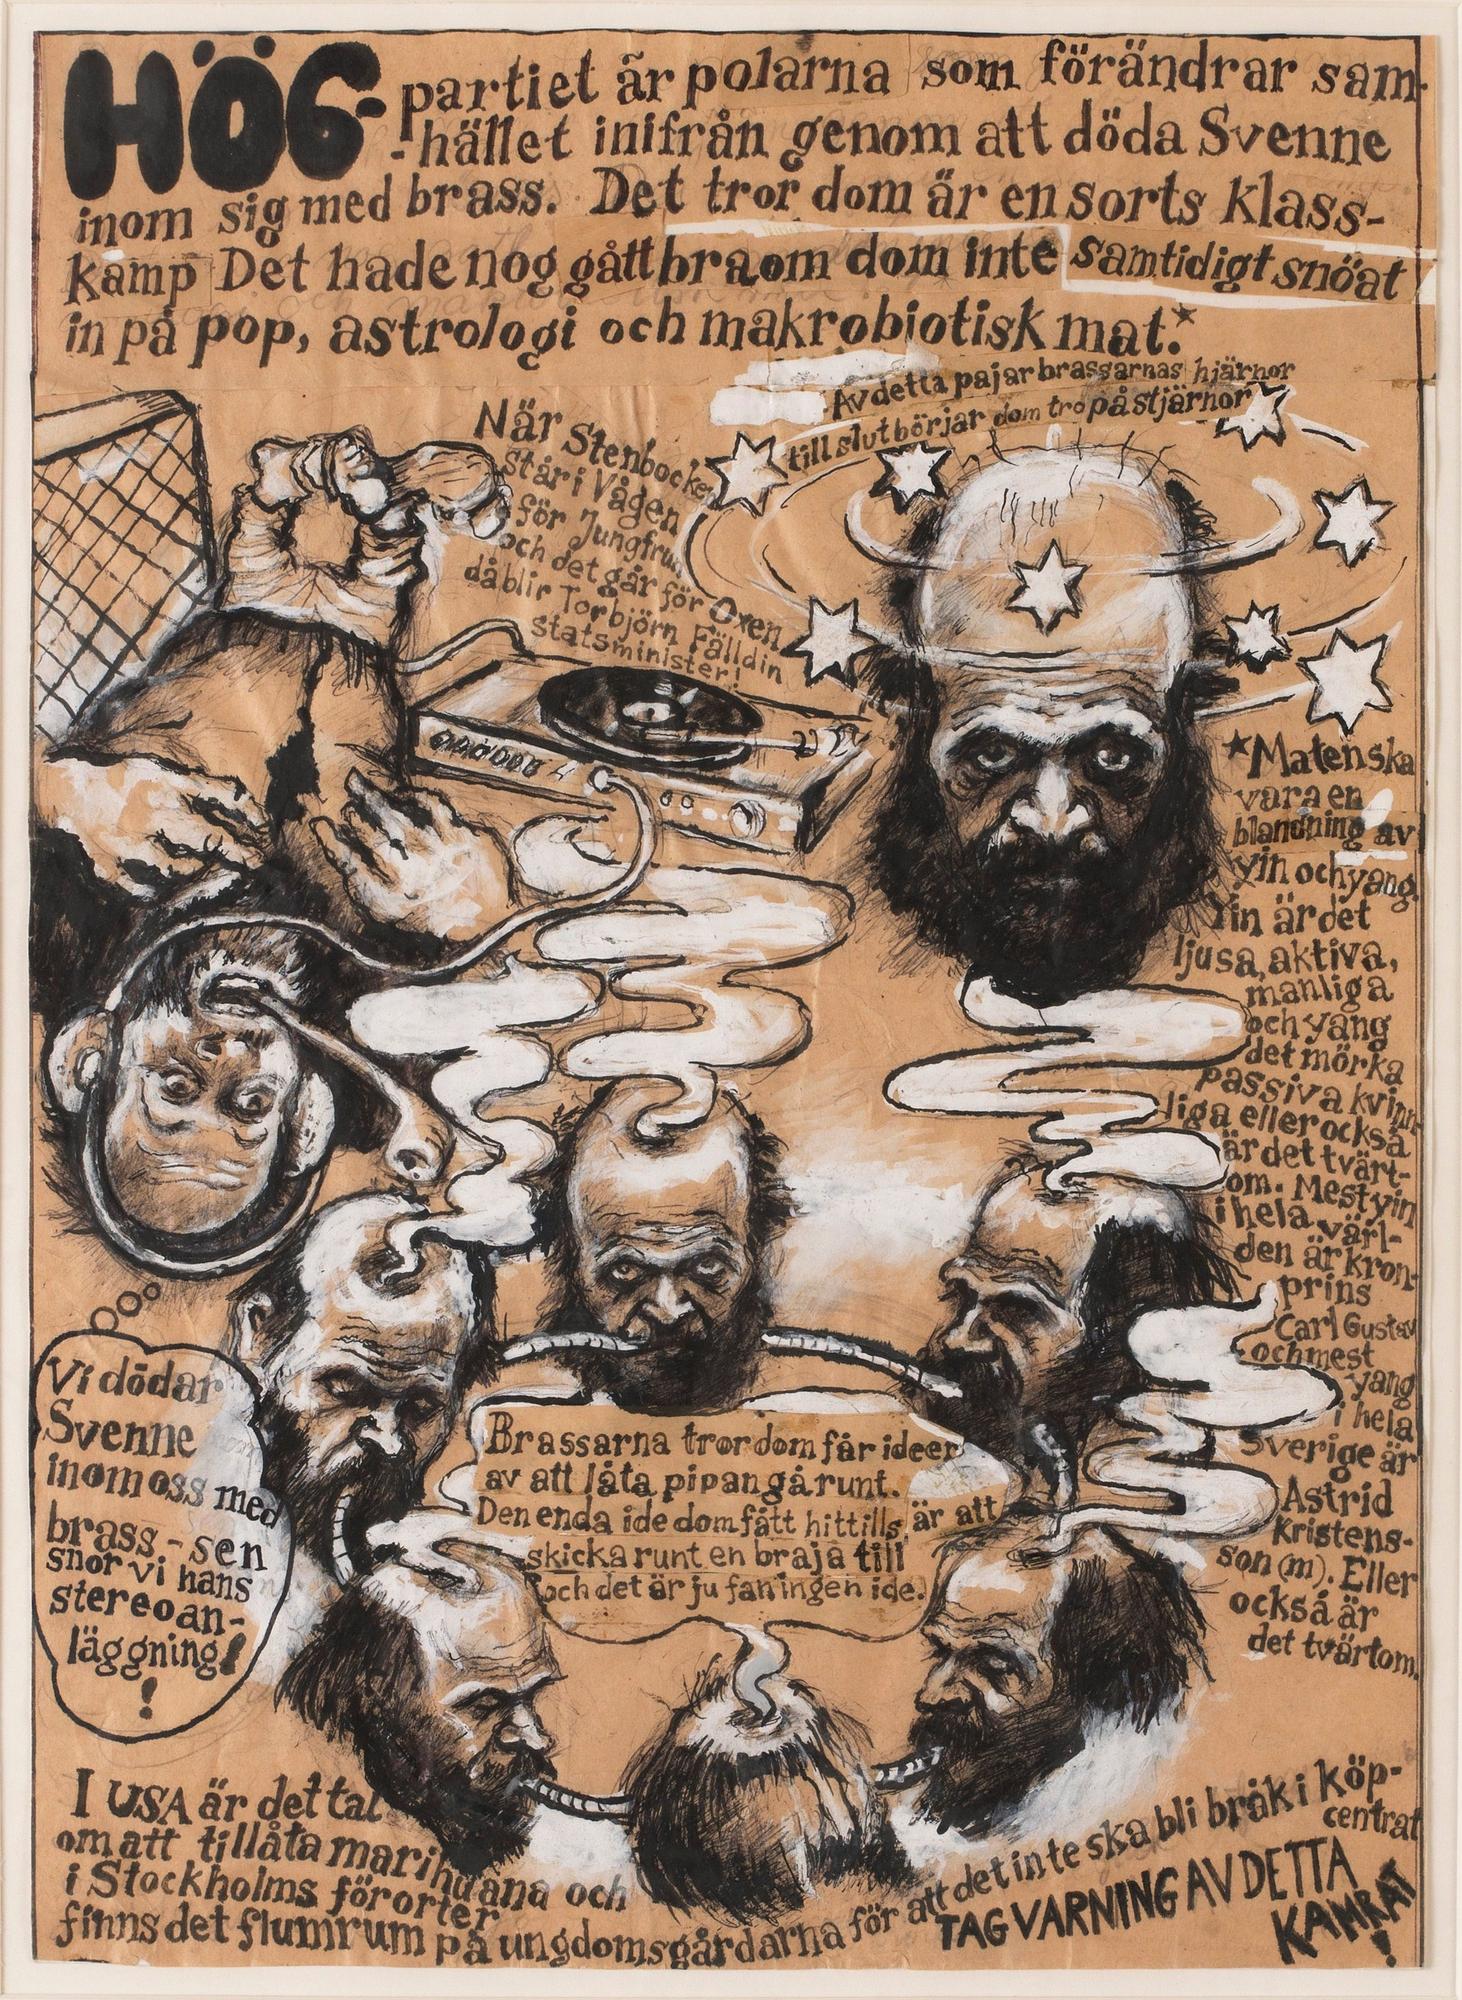 HÖG-partiet är polarna som förändrar sam-
-hället inifrån genom att döda Svenne
inom sig med brass. Det tror dom är en sorts klass-
kamp Det hade nog gått bra om dom inte samtidigt snöat
in på pop, astrologi och makrobiotisk mat.*
Av detta pajar brassarnas hjärnor
till slut börjar dom tro på stjärnor
När Stenbocken
står i Vågen
för Jungfrun
och det går för Oxen
då blir Torbjörn Fälldin
statsminister!
*Maten ska
vara en
blandning av
yin och yang.
Yin är det
ljusa, aktiva,
manliga
och yang
det mörka
passiva kvinn
liga eller också
är det tvärt-
om. Mest yin
i hela värl-
den är kron-
prins
Carl Gustav
och mest
yang
i hela
Sverige är
Astrid
Kristens-
son (m). Eller
också är
det tvärtom.
Vi dödar
Svenne
inom oss med
brass - sen
snor vi hans
stereoan-
läggning!
!
Brassarna tror dom får ideer
av att låta pipan gå runt.
Den enda ide dom fått hittills är att
skicka runt en braja till
och det är ju fan ingen ide.
I USA är det tal
om att tillåta marihuana och
i Stockholms förorter
finns det flumrum på ungdomsgårdarna för att det inte ska bli bråk i köp-
centrat
TAG VARNING AV DETTA
KAMRAT
!